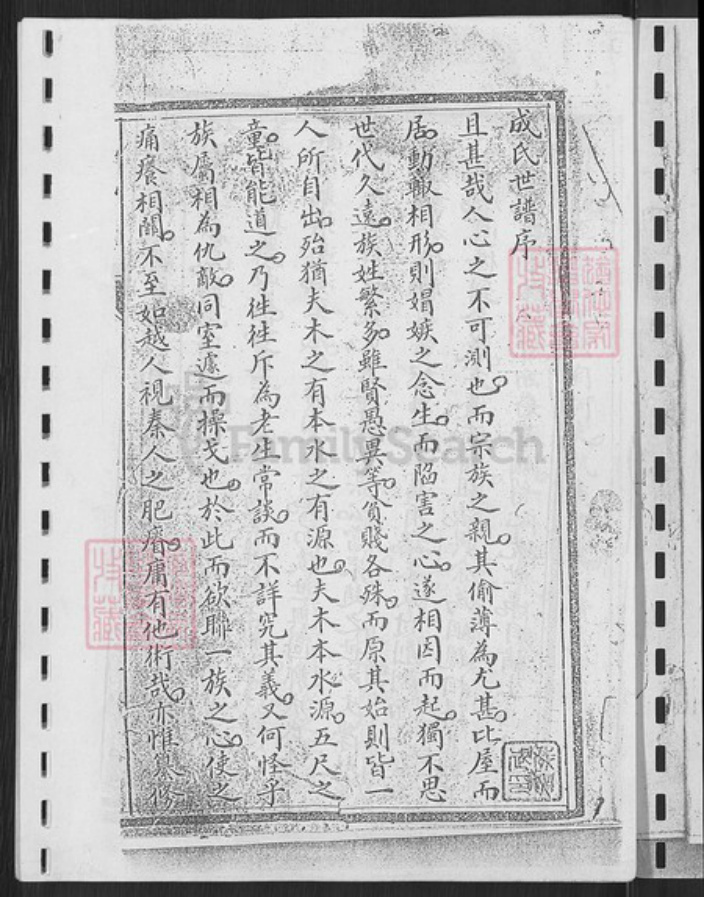 成氏世譜序
且甚哉人心之不可測也而宗族之親其偷薄為尤甚比屋而
居動輒相形則媢嫉之念生而陷害之心遂相因而起獨不思
世代久遠族姓繁多雖賢愚異等貧賤各殊而原其始則皆一
人所自出殆猶夫木之有本水之有源也夫木本水源五尺之
童皆能道之乃徃徃斥為老生常談而不詳究其義又何怪乎
族屬相為仇敵同室遽而操戈也於此而欲聯一族之心使之
痛癢相關不至如越人視秦人之肥瘠庸有他術哉亦惟纂修
FamilySearch
特藏
特藏